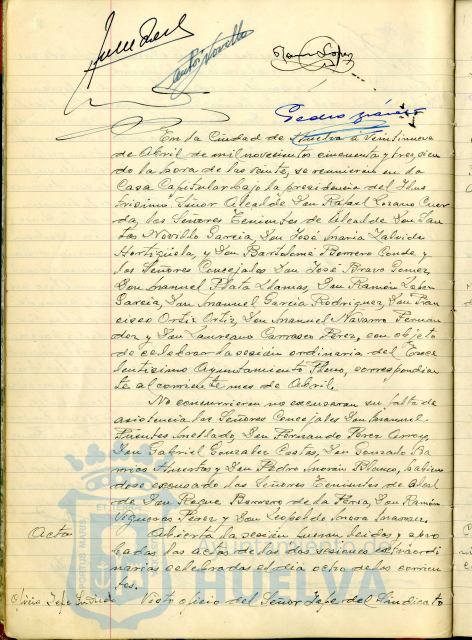 Pedro
En la Ciudad de Huelva a veintinueve
de Abril de mil novecientos cincuenta y tres, sien
do la hora de las veinte, se reunieron en la
Casa Capitular bajo la presidencia del Ilus
trísimo Señor Alcalde Don Rafael Lozano Cuer
da, los Señores Tenientes de Alcalde Don San
tos Novillo García, Don José María
Hortigüela, y Don Bartolomé Borrero Conde y
los Señores Concejales Don José Bravo Gomez,
Don Manuel Plata Llamas, Don Ramón López
García, Don Manuel García Rodriguez, Don Fran
cisco Ortiz Ortiz, Don Manuel Navarro Fernan
dez y Don Laureano Carrasco Pérez, con objeto
de celebrar la sesión ordinaria del Exce
lentísimo Ayuntamiento Pleno, correspondien
te al corriente mes de Abril.
No concurrieron ni excusaron su falta de
asistencia los Señores Concejales Don Manuel
Fuentes Don Fernando Pérez Arroyo,
Don Gabriel Gonzalez Costas, Don Gonzalo Ba
rrios Huertas y Don Pedro Morón Blanco, habien
dose excusado los Señores Tenientes de Alcal
de Don Roque Borrero de la Don Ramón
Vigueras Pérez y Don Leopoldo
Actas
Abierta la sesión fueron leidas y apro
badas las actas de las dos sesiones extraordi
narias celebradas el dia ocho de los corrien
tes.
Oficio Jefe Sindicato
Visto oficio del Señor Jefe del Sindicato
PORTUS MARIS
Ayuntamiento de
HUELVA